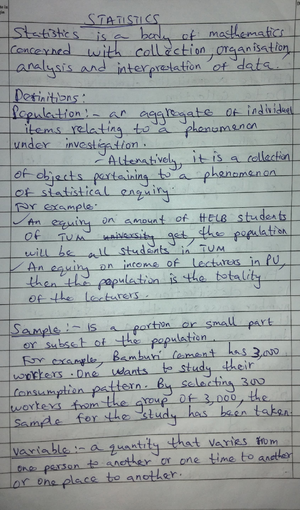 STATISTICS
Statistics is a body of mathematics
concerned with collection, organisation,
analysis and interpretation of data.
Definitions:
Population:- an aggregate of individual
items relating to a phenomenon
under investigation.
- Altenatively, it is a collection
of objects pertaining to a phenomenon
of statistical enquiry.
For example-
✓ An equiry on amount of HELB students
of TUM university get, the population
will be all students in TUM
✓ An equiry on income of lecturers in PU,
then the population is the totality
of the lecturers.
Sample:- Is a portion or small part
or subset of the population.
For example, Bamburi cement has 3,000
workers. One wants to study their
consumption pattern. By selecting 300
workers from the group of 3,000, the
sample for the study has been taken.
Variable:- a quantity that varies from
one person to another or one time to another
or one place to another.